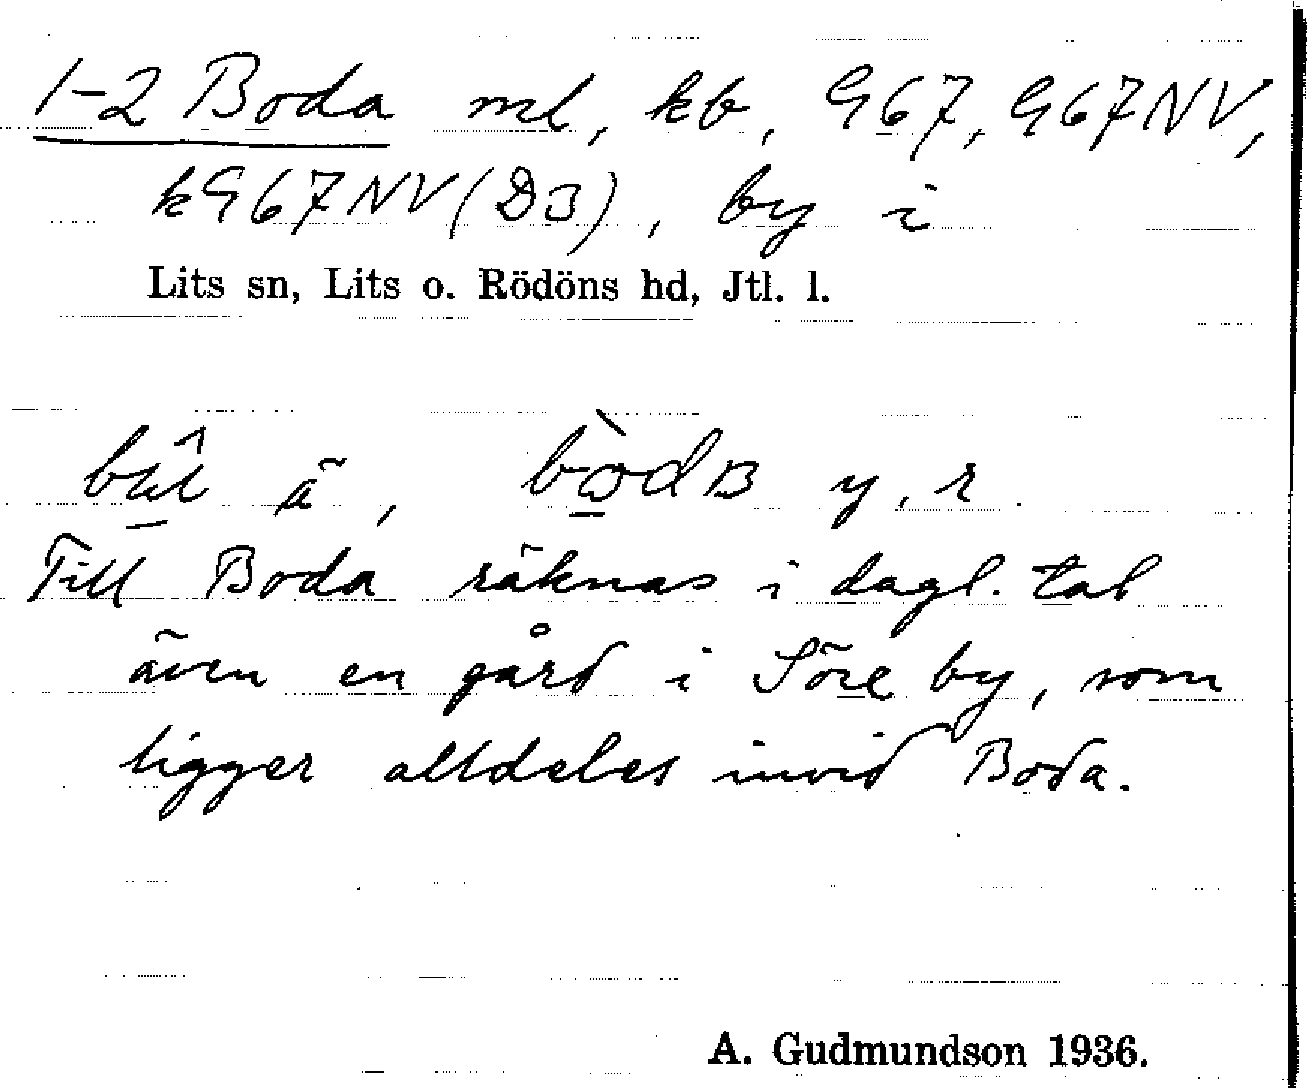 1-2 Boda ml, kb, G67, G67NV,
kG67NV(DB), by i
Lits sn, Lits o. Rödöns hd, Jtl. l.
ä, y, r.
Till Boda räknas i dagl. tal
även en gård i Söre by, som
ligger alldeles invid Boda.
A. Gudmundson 1936.